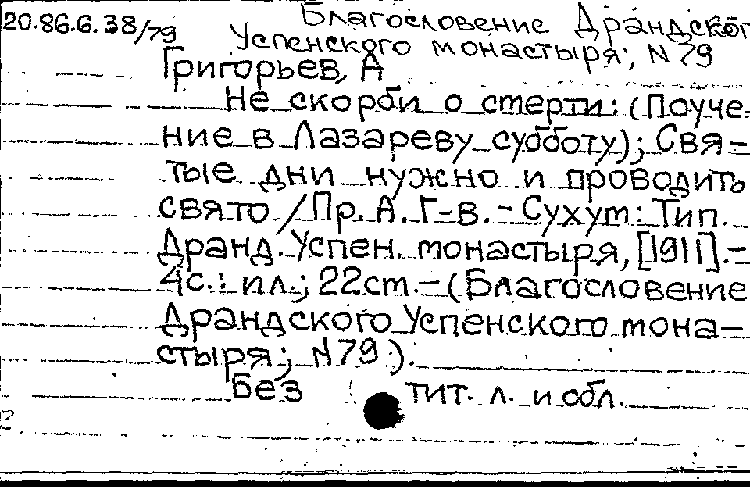 20.86.6.38/79 Благословение Драндского
Успенского монастыря; N 79
Григорьев, А
Не скорби о смерти: (Поуче-
ние в Лазареву субботу); Свя-
тые дни нужно и проводить
свято / Пр. А. Г-в. - Сухум: Тип.
Дранд. Успен. монастыря, [1911]. -
4с.: ил.; 22см. - (Благословение
Драндского Успенского мона-
стыря; N79).
Без тит. л. и обл.